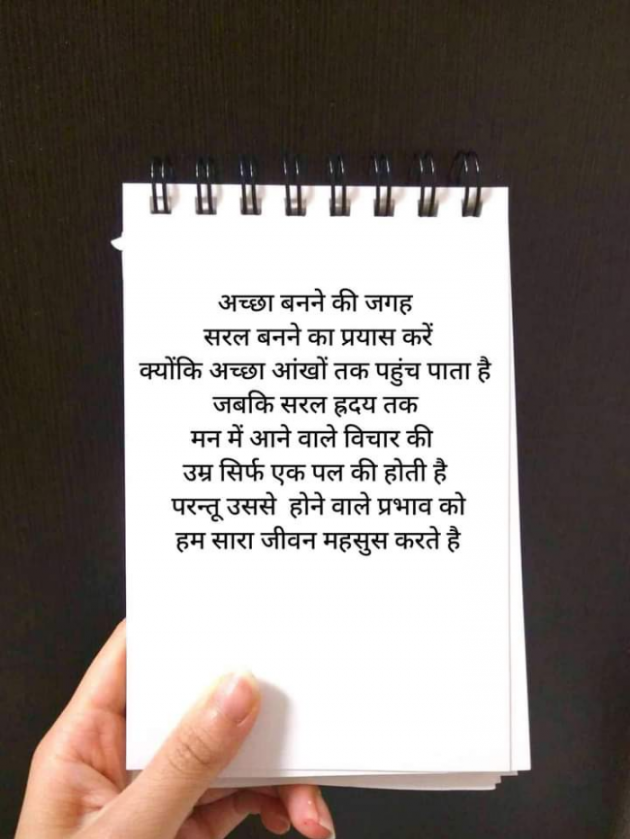 अच्छा बनने की जगह
सरल बनने का प्रयास करें
क्योंकि अच्छा आंखों तक पहुंच पाता है
जबकि सरल ह्रदय तक
मन में आने वाले विचार की
उम्र सिर्फ एक पल की होती है
परन्तू उससे होने वाले प्रभाव को
हम सारा जीवन महसुस करते है